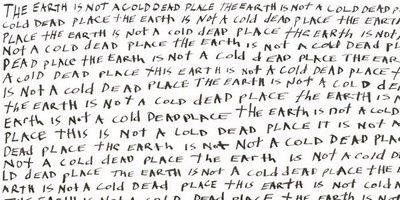 THE EARTH IS NOT A COLD DEAD PLACE THE EARTH IS NOT A COLD DEAD P
COLD DEAD PLACE THE EARTH IS NOT A COLD DEAD PLACE THE EARTH
PLACE THE EARTH IS NOT A COLD DEAD PLACE THE EARTH IS NOT
NOT A COLD DEAD PLACE THE EARTH IS NOT A COLD DEAD PL
DEAD PLACE THE EARTH IS NOT A COLD DEAD PLACE THE EAR
A COLD DEAD PLACE THIS EARTH IS NOT A COLD DEAD PLACE
IS NOT A COLD DEAD PLACE THE EARTH IS NOT A COLD DE
THE EARTH IS NOT A COLD DEAD PLACE THE EARTH IS N
EARTH IS NOT A COLD DEAD PLACE THE EARTH IS NOT A COLD
PLACE THIS IS NOT A COLD DEAD PLACE IT IS NOT A
DEAD PLACE THE EARTH IS NOT A COLD DEAD PLACE THE
NOT A COLD DEAD PLACE THE EARTH IS NOT A COLD D
LD DEAD PLACE THE EARTH IS NOT A COLD DEAD PLACE THE E
ARTH IS NOT A COLD DEAD PLACE THIS EARTH IS NOT A COLD